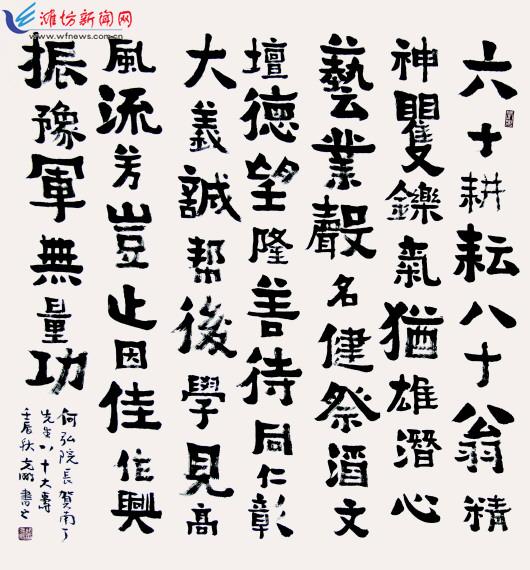 潍坊新闻网
www.wfnews.com.cn
六十耕耘八十翁精
神矍鑠氣猶雄潛心
藝業聲名健祭酒文
壇德望隆善待同仁彰
大義誠幫後學見高
風流芳豈止因佳作興
振豫軍無量功
何弘院長賀南丁
先生八十大壽
壬辰秋 書之